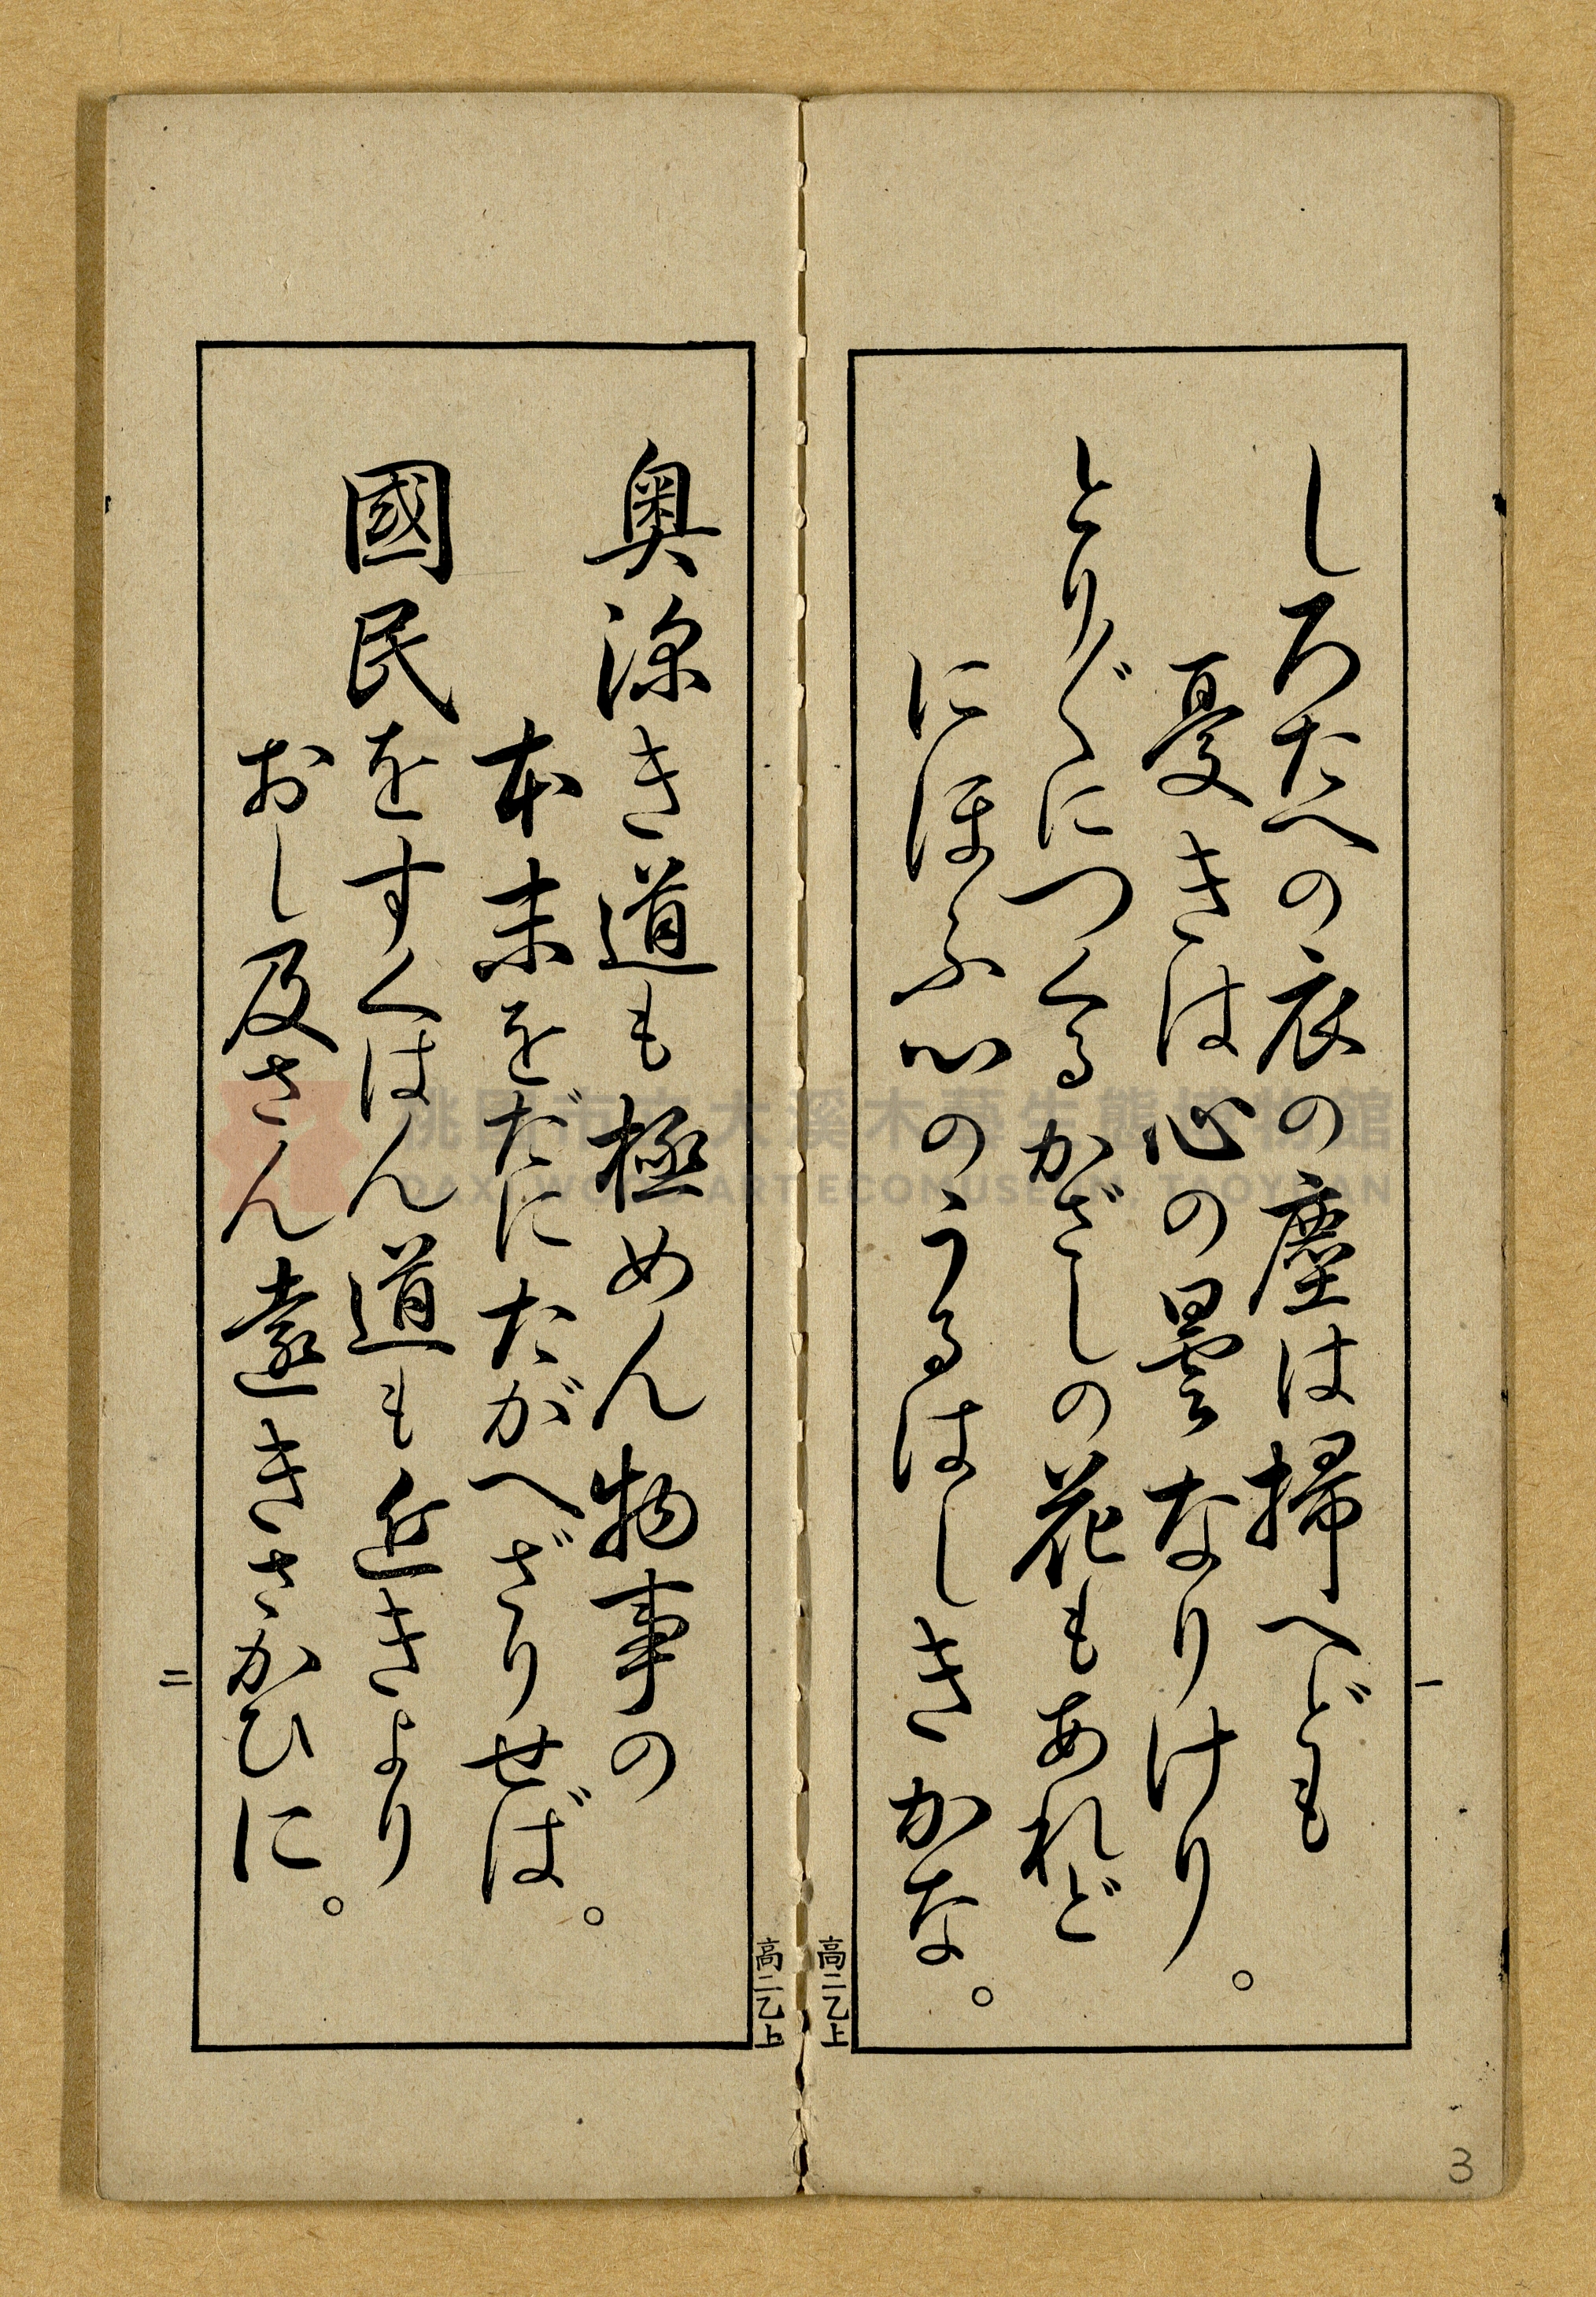 しろたへの衣の塵は掃へども
憂きは心の曇なりけり。
とり〴〵につくるかざしの花もあれど
にほふ心のうるはしきかな。
一
高二乙上
奥深き道も極めん物事の
本末をだにたがへざりせば。
國民をすくはん道も近きより
おし及さん遠きさかひに。
二
高二乙上
3
桃園市立大溪木藝生態博物館
DAXI WOOD ART ECOMUSEUM, TAOYUAN